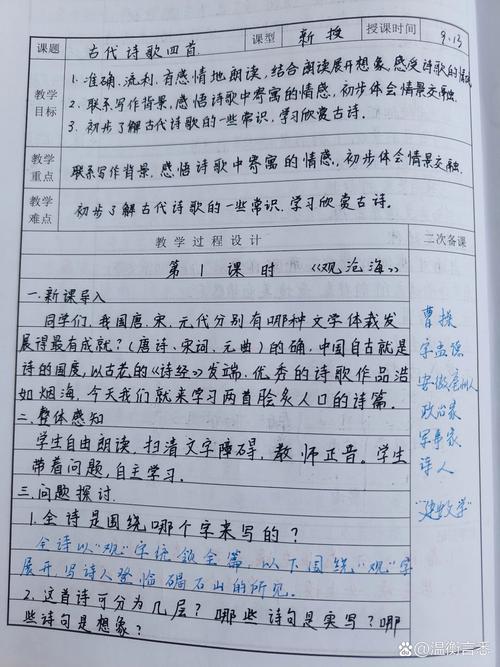 课题 古代诗歌四首 课型 新授 授课时间 9.13
教学目标
1. 准确、流利、有感情地朗读,结合朗读展开想象,感受诗歌的情
2. 联系写作背景,感悟诗歌中寄寓的情感,初步体会情景交融.
3. 初步了解古代诗歌的一些常识,学习欣赏古诗。
教学重点
联系写作背景,感悟诗歌中寄寓的情感,初步体会情景交融.
教学难点
初步了解古代诗歌的一些常识.学习欣赏古诗。
教学过程设计 二次备课
第1课时 《观沧海》
一.新课导入
同学们,我国唐、宋、元代分别有哪种文学体裁发
展得最有成就?(唐诗、宋词、元曲)的确,中国自古就是
诗的国度,以古老的《诗经》发端,优秀的诗歌作品浩
如烟海,今天我们就来学习两首脍炙人口的诗篇。
二.整体感知
学生自由朗读,扫清文字障碍,教师正音。学生
带着问题,自主学习。
三.问题探讨.
1.全诗是围绕哪个字来写的?
全诗以"观"字统领全篇,以下围绕"观"字
展开,写诗人登临碣石山的所见。
2.这首诗可分为几层?哪些诗句是实写?哪
些诗句是想象?
曹操
字孟德
安徽亳州人
政治家
军事家
诗人
"建安文学"
@温衡言悉